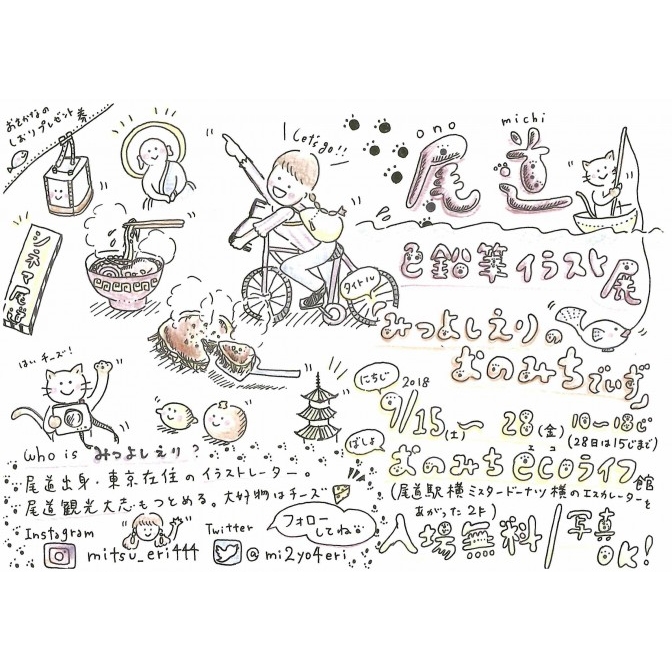 おさかなの
しおりプレゼント券
Let's go!!
ono
michi
尾道
色鉛筆イラスト展
シネマ尾道
タイトル
みつよしえりの
おのみちでいず
はい チーズ!
にちじ
2018
9/15(土)〜28(金) 10〜18じ
(28日は15じまで)
ばしょ
おのみちecoライフ館
エコ
(尾道駅横ミスタードーナツ横のエスカレーターを
あがった2F)
入場無料/写真OK!
who is みつよしえり?
尾道出身・東京在住のイラストレーター。
尾道観光大志もつとめる。大好物はチーズ
Instagram
mitsu_eri444
Twitter
@mi2yo4eri
フォロー
してね